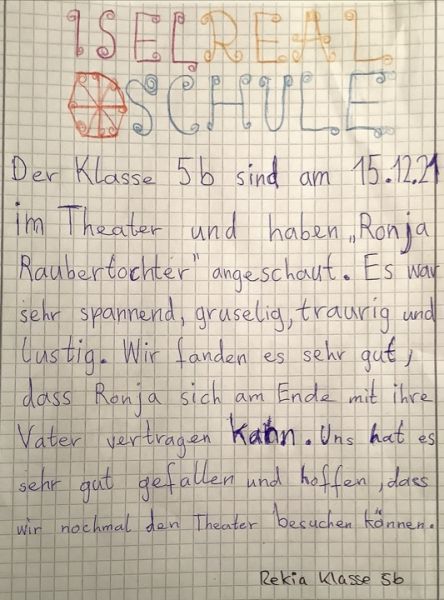 ISELREAL
SCHULE
Der Klasse 5b sind am 15.12.21
im Theater und haben „Ronja
Raubertochter" angeschaut. Es war
sehr spannend, gruselig, traurig und
lustig. Wir fanden es sehr gut,
dass Ronja sich am Ende mit ihre
Vater vertragen kahn. Uns hat es
sehr gut gefallen und hoffen, dass
wir nochmal den Theater besuchen können.
Rekia Klasse 5b